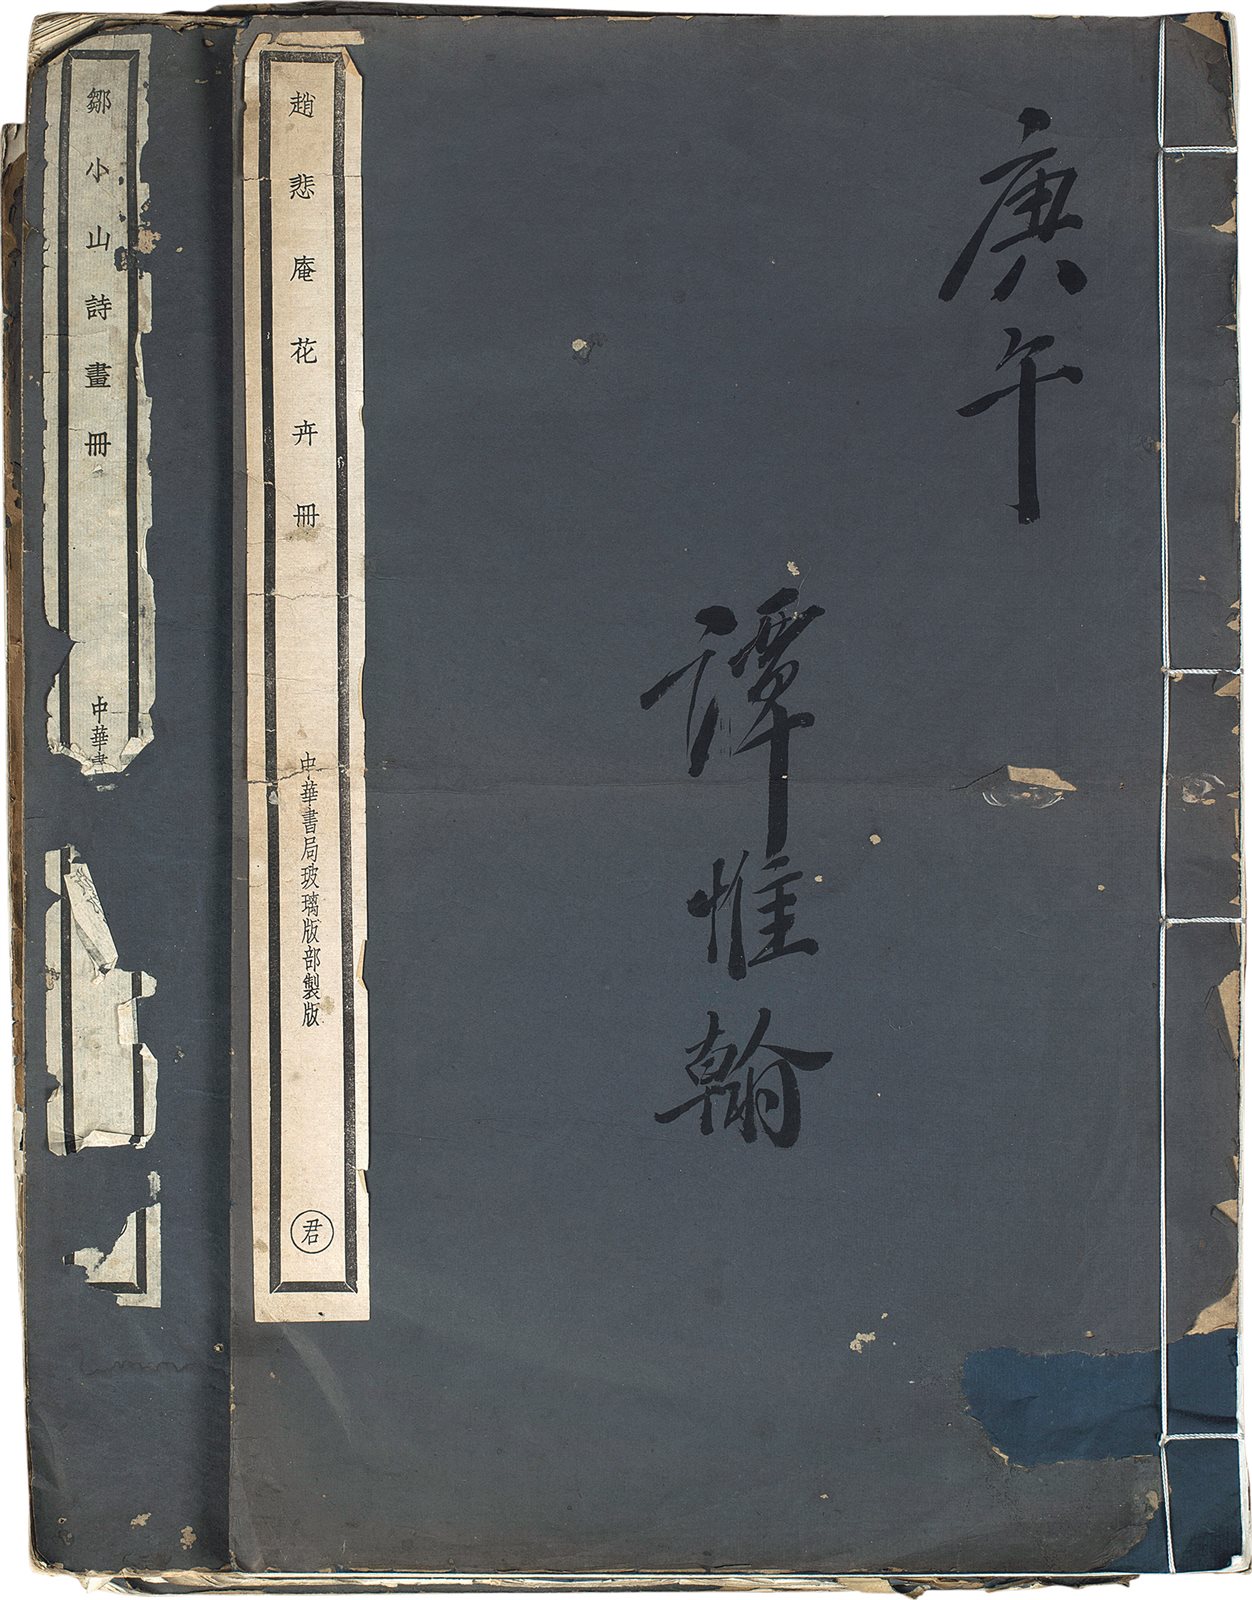 庚午
譚惟翰
趙悲庵花卉冊
中華書局玻璃版部製版
君
鄒小山詩畫冊
中華書